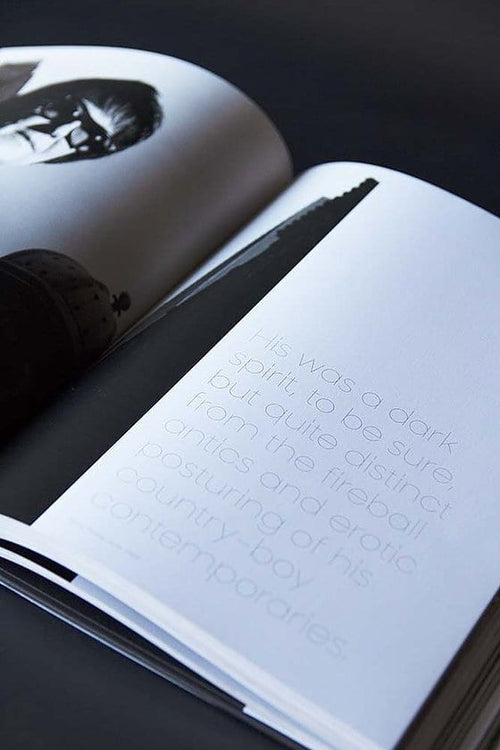 His was a dark
spirit, to be sure,
but quite distinct
from the fireball
antics and erotic
posturing of his
country-boy
contemporaries.